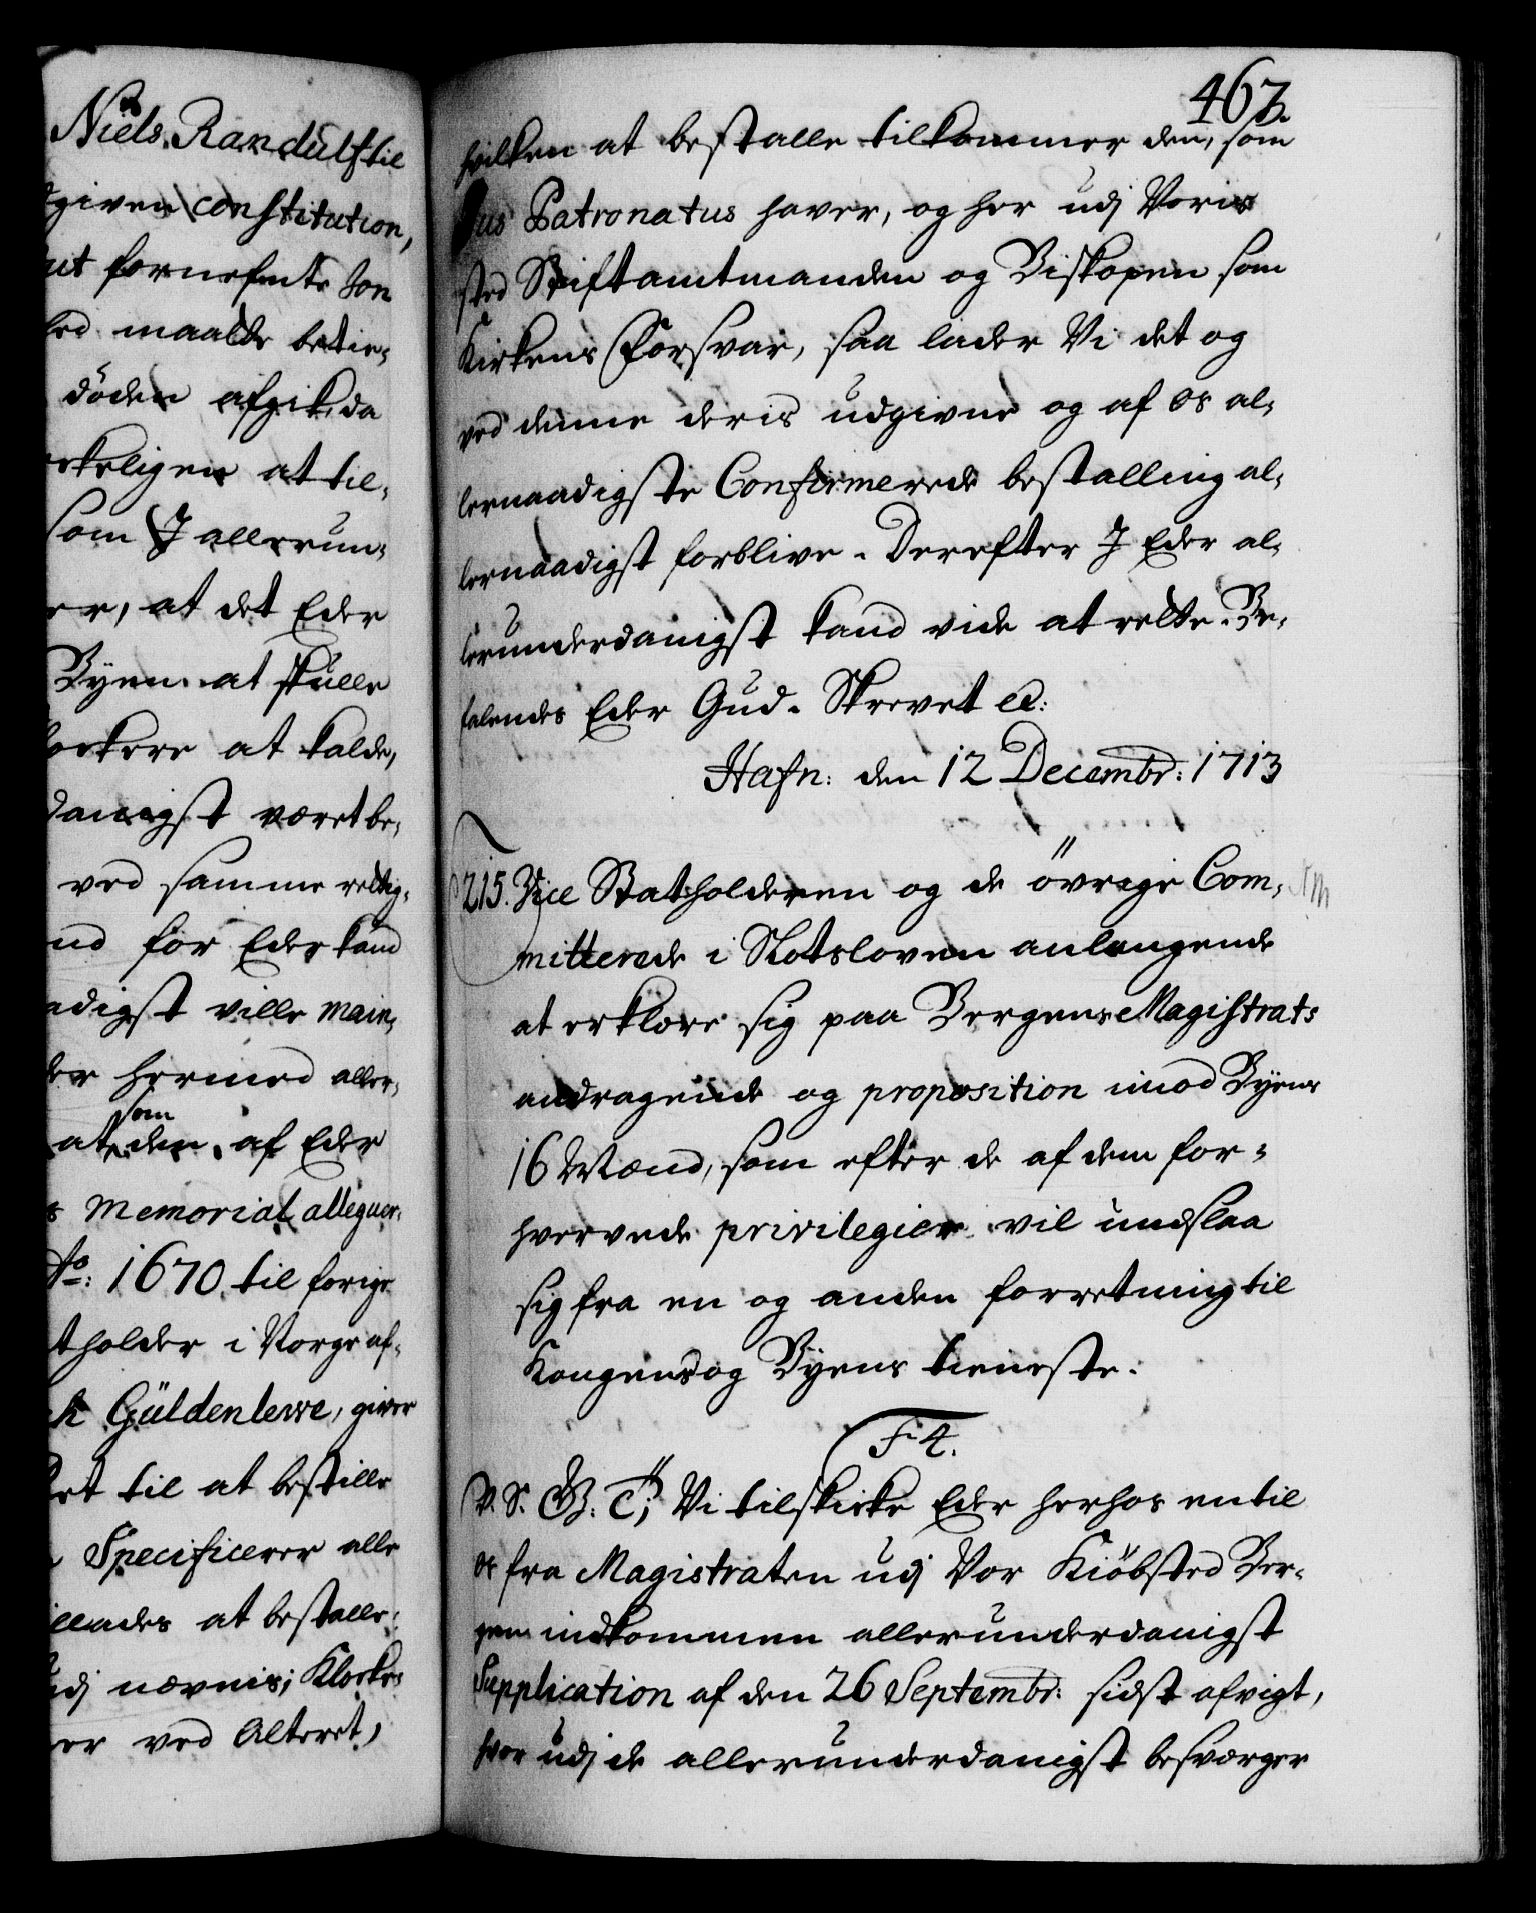 Niels Randulf til
given constitution,
ut fornefnte Son
led maatte betie,
döden afgik, da
rkeligen at til,
som J allerun,
er, at det Eder
Byen at skulle
lockere at kalde,
danigst været be,
ved samme rettig,
nd for Eder kand
adigst ville main,
der hermed aller,
at den som af Eder
s Memorial alleguer,
Ao: 1670 til forige
tholder i Norge af,
ck Güldenlewe, giver
Ret til at bestille
Specificerer alle
illades at bestalle,
udj nævnis; Klocker
er ved Alteret,
467.
hvilken at bestalle tilkommer den, som
Jus Patronatus haver, og her udj Voris
sted Stiftamtmanden og Biskopen som
Kirkens Forsvar, saa lader Vi det og
ved denne deris udgivne og af os al,
lernaadigste Confirmerede bestalling al,
lernaadigst forblive. Derefter J Eder al,
lerunderdanigst kand vide at rette. Be,
falendes Eder Gud. Skrevet etc:
Hafn: den 12 Decembr: 1713
215. Vice Statholderen og de övrige Com,
mitterede i Slotsloven anlangende
at erklære sig paa Bergens Magistrats
andragende og proposition imod Byens
16 Mænd, som efter de af dem for,
hvervede privilegier vil undslaa
sig fra en og anden forretning til
Kongens og Byens tieneste.
F 4.
V. S. G. T; Vi tilskicke Eder herhos en til
os fra Magistraten udj Vor Kiöbsted Ber,
gen indkommen allerunderdanigst
Supplication af den 26 Septembr: sidst afvigt,
hvor udj de allerunderdanigst besværger